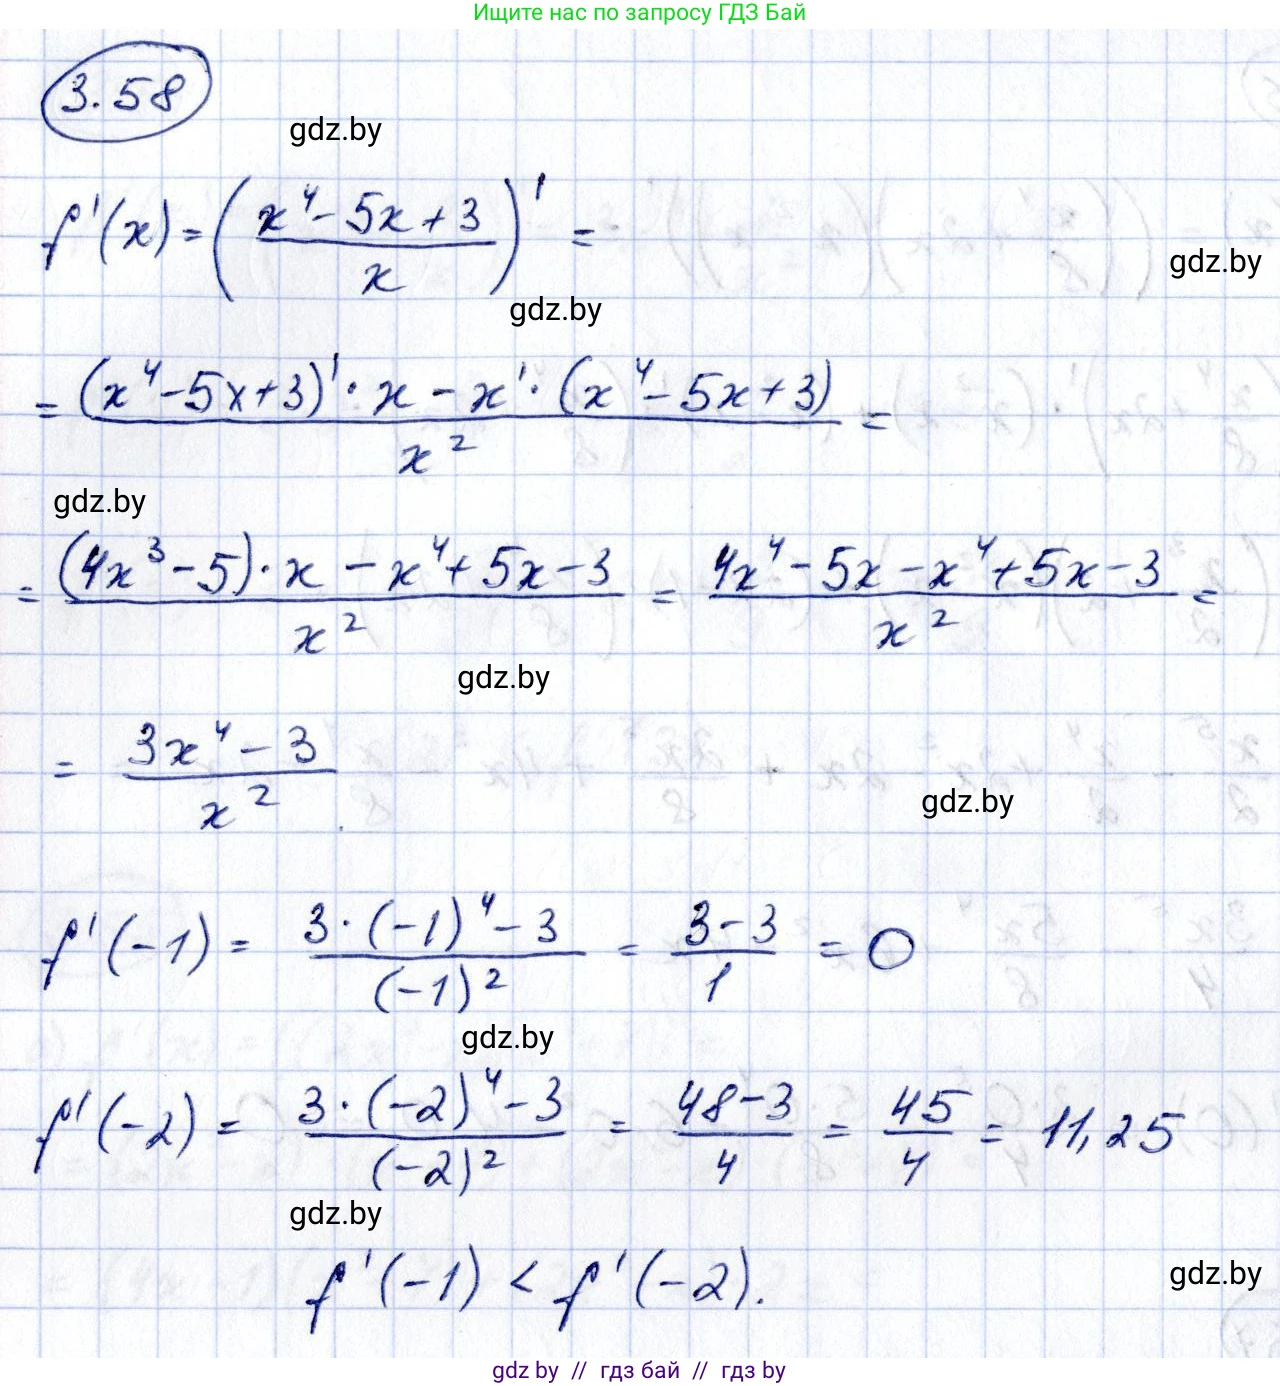 Ищите нас по запросу ГДЗ Бай
3.58
gdz.by
f'(x) = ( (x⁴ - 5x + 3) / x )' =
gdz.by
gdz.by
= ((x⁴ - 5x + 3)' · x - x' · (x⁴ - 5x + 3)) / x² =
gdz.by
= ((4x³ - 5) · x - x⁴ + 5x - 3) / x² = (4x⁴ - 5x - x⁴ + 5x - 3) / x² =
gdz.by
= (3x⁴ - 3) / x².
gdz.by
f'(-1) = (3 · (-1)⁴ - 3) / (-1)² = (3 - 3) / 1 = 0
gdz.by
f'(-2) = (3 · (-2)⁴ - 3) / (-2)² = (48 - 3) / 4 = 45 / 4 = 11,25
gdz.by
f'(-1) < f'(-2).
gdz.by
gdz by // гдз бай // гдз by